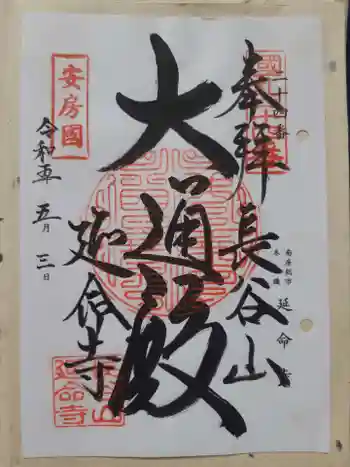 二十四番
奉拝
長谷山
南房総市
本織
延命寺
大通殿
延命寺
安房國
令和五年五月三日